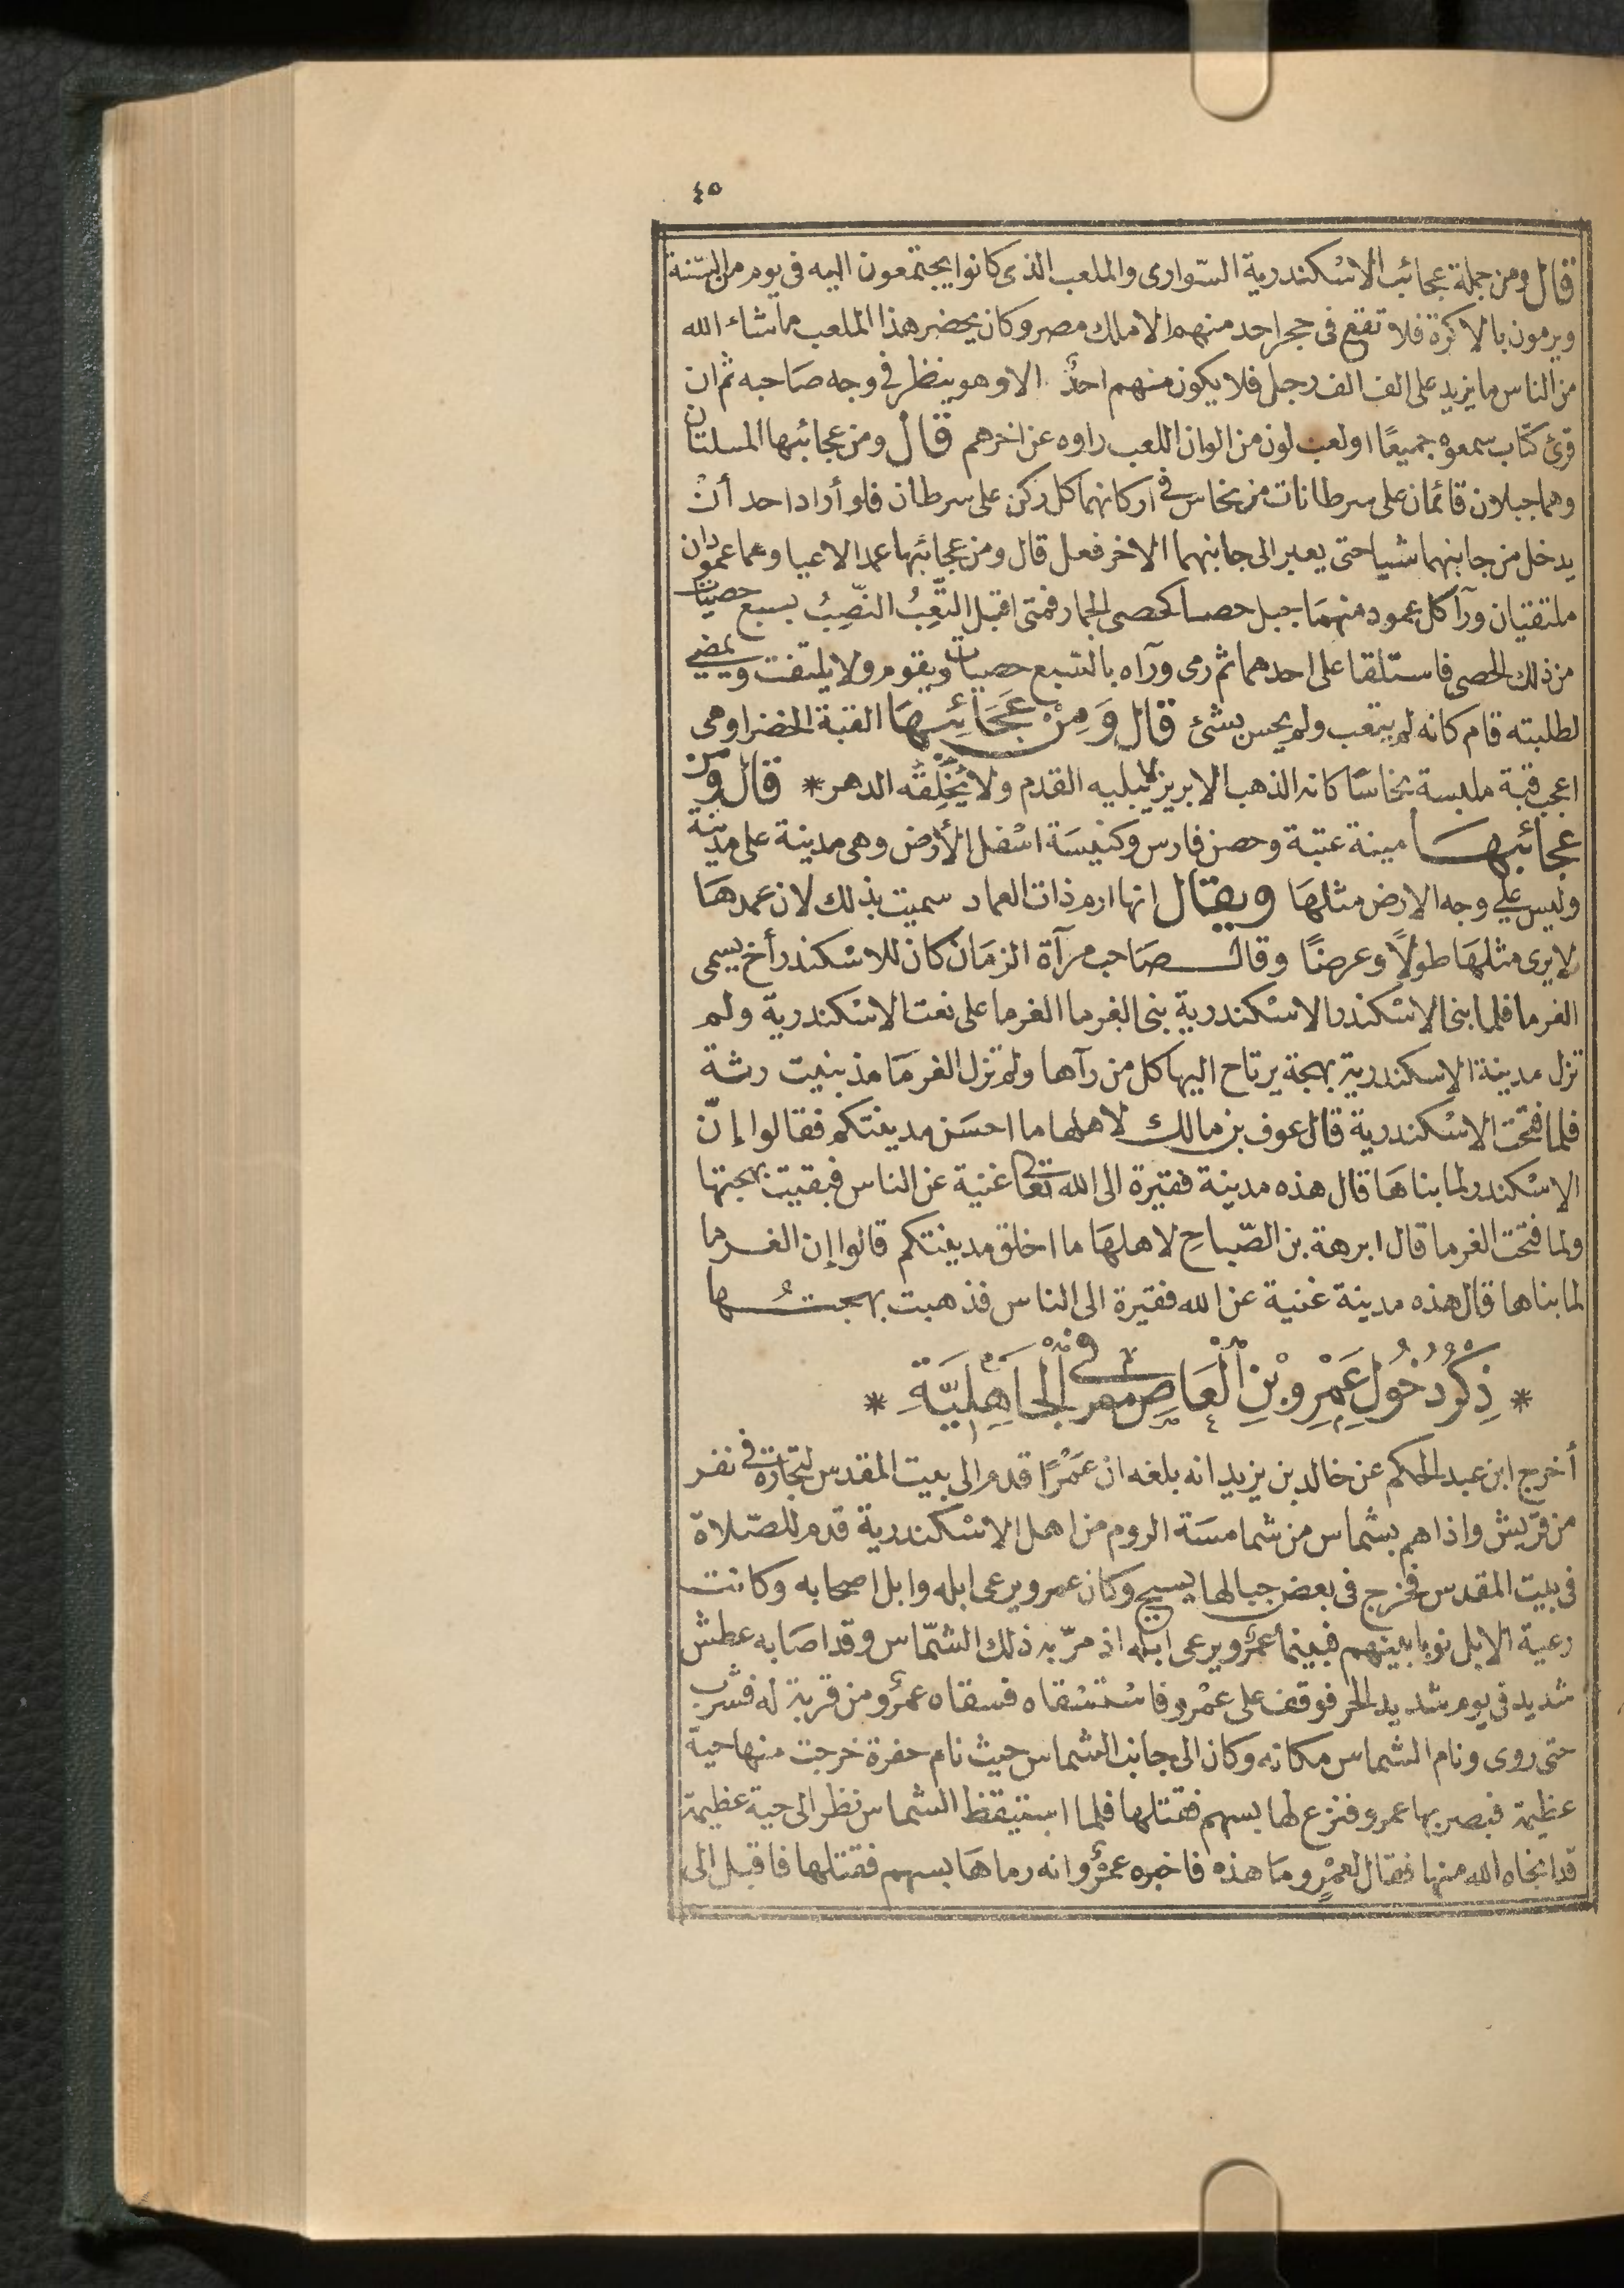 ٤٥
قال ومن جملة عجائب الاسْكندرية السّوارى والملعب الذى كانوا يجتمعون اليه فى يوم من السّنة
ويرمون بالاكرة فلا تقع فى حجر احد منهم الا ملك مصر وكان يحضر هذا الملعب ما شاء الله
من الناس ما يزيد على الف الف رجل فلا يكون منهم احدٌ الا وهو ينظر فى وجه صَاحبه ثم ان
قرئ كتاب سمعوه جميعًا او لعب لون من الوان اللعب راوه عن اخرهم قال ومن عجائبها المسلتان
وهما جبلان قائمان على سرطانات من نحاس فى اركانهما كل ركن على سرطان فلو أراد احد أنْ
يدخل من جانبهما شيا حتى يعبر الى جانبهما الاخر فعل قال ومن عجائبها عمد الاعيا وهما عمودان
ملتقيان ورآ كل عمود منهمَا جبل حصا كحصى الجمار فمتى اقبل التَّعِبُ النَّصِبُ بسبع حصيات
من ذلك الحصى فاستلقا على احدهما ثم رمى ورآه بالسّبع حصيات ويقوم ولا يلتفت ويمضى
لطلبته قام كانه لم يتعب ولم يحس بشئ قال وَمِنْ عَجَائِبِهَا القبة الخضرا وهى
اعجب قبة ملبسة نحاسًا كانه الذهب الابريز لا يبليه القدم ولا يُخْلِقُه الدهر * قال ومن
عجائبهـا مينة عتبة وحصن فارس وكنيسَة اسْفل الأرض وهى مدينة على مدينة
وليس على وجه الارض مثلهَا ويقال انها ارم ذات العماد سميت بذلك لان عمدهَا
لا يرى مثلهَا طولاً وعرضًا وقالـ صَاحب مرآة الزمَان كان للاسْكندر أخ يسمى
الفرما فلما بنى الاسْكندر الاسْكندرية بنى الفرما الفرما على نعت الاسْكندرية ولم
تزل مدينة الاسكندرية بهجة يرتاح اليها كل من رآها ولم تزل الفرمَا مذ بنيت رثة
فلما فتحت الاسْكندرية قال عوف بن مالك لاهلها ما احسَن مدينتكم فقالوا إنّ
الاسْكندر لما بناهَا قال هذه مدينة فقيرة الى الله تعالى غنية عن الناس فبقيت بهجتها
ولما فتحت الفرما قال ابرهة بن الصّباحِ لاهلهَا ما اخلق مدينتكم قالوا إن الفـرما
لما بناها قال هذه مدينة غنية عن الله فقيرة الى الناس فذهبت بهجتُـها
* ذِكْرُ دُخُولِ عَمْرِو بْنِ الْعَاصِ مصر فى الْجَاهِلِيَّةِ *
أخرج ابن عبد الحكم عن خالد بن يزيد انه بلغه ان عَمْرًا قدم الى بيت المقدس لتجارة فى نفر
من قريش واذا هم بشماس من شمامسَة الروم من اهل الاسْكندرية قدم للصّلاة
فى بيت المقدس فخرج فى بعض جبالها يسيح وكان عمرو يرعى ابله وابل اصحابه وكانت
رعية الابل نوبا بينهم فبينما عمرٌو يرعى ابله اذ مرّ به ذلك الشمّاس وقد اصَابه عطش
شديد فى يوم شديد الحر فوقف على عمْرو فاسْتسْقاه فسقاه عمرٌو من قربة له فشرب
حتى روى ونام الشماس مكانه وكان الى جانب الشماس حيث نام حفرة خرجت منها حيّة
عظيمة فبصر بها عمرو فنزع لها بسهم فقتلها فلما استيقظ الشماس نظر الى حية عظيمة
قد انجاه الله منها فقال لعمْرٍو مَا هذه فاخبره عمرٌو انه رماهَا بسهم فقتلها فاقبل الى